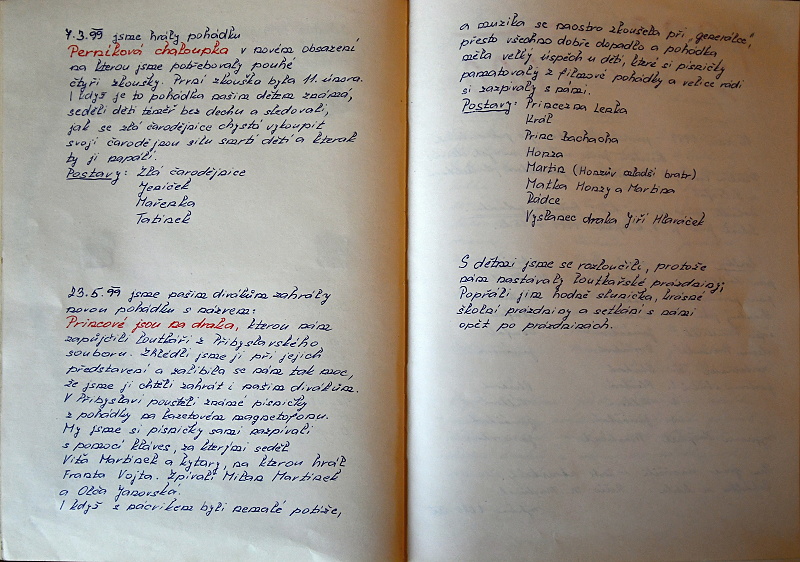 7.3.99 jsme hrály pohádku
Perníková chaloupka v novém obsazení
na kterou jsme potřebovaly pouhé
čtyři zkoušky. První zkouška byla 11. února.
I když je to pohádka našim dětem známá,
seděli děti téměř bez dechu a sledovali,
jak se zlá čarodějnice chystá vykoupit
svoji čarodějnou sílu smrtí dětí a kterak
ty ji napálí.
Postavy: Zlá čarodějnice
Jeníček
Mařenka
Tatínek
23.5.99 jsme našim divákům zahrály
novou pohádku s názvem:
Princové jsou na draka, kterou nám
zapůjčili loutkáři z Přibyslavského
souboru. Zhlédli jsme ji při jejich
představení a zalíbila se nám tak moc,
že jsme ji chtěli zahrát i našim divákům.
V Přibyslavi pouštěli známé písničky
z pohádky na kazetovém magnetofonu.
My jsme si písničky sami nazpívali
s pomocí kláves, za kterými seděl
Víťa Martínek a kytary, na kterou hrál
Franta Vojta. Zpívali Milan Martínek
a Olča Janovská.
I když s nácvikem byli nemalé potíže,
a muzika se naostro zkoušela při "generálce",
přesto všechno dobře dopadlo a pohádka
měla velký úspěch u dětí, které si písničky
pamatovaly z filmové pohádky a velice rádi
si zazpívaly s námi.
Postavy: Princezna Lenka
Král
Princ Bachacha
Honza
Martin (Honzův mladší bratr)
Matka Honzy a Martina
Rádce
Vyslanec draka Jiří Hlaváček
S dětmi jsme se rozloučili, protože
nám nastávaly loutkařské prázdniny,
Popřáli jim hodně sluníčka, krásné
školní prázdniny a setkání s námi
opět po prázdninách.